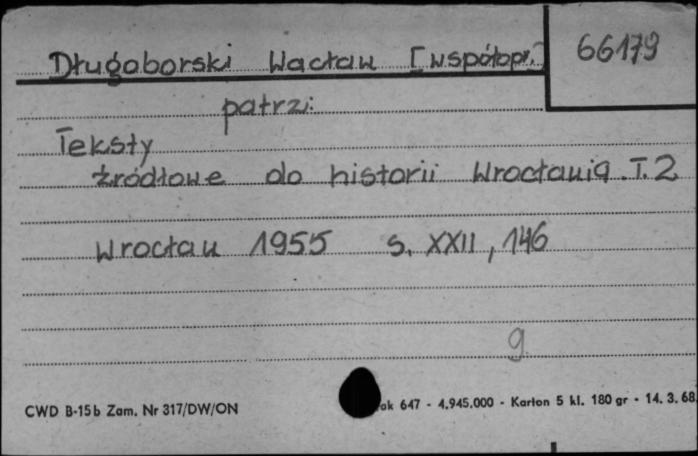 Długoborski Wacław [współopr.] 66179
patrz:
Teksty
źródłowe do historii Wrocławia. T. 2
Wrocław 1955 s. XXII, 146
g
CWD B-15b Zam. Nr 317/DW/ON ak 647 - 4.945.000 - Karton 5 kl. 180 gr - 14. 3. 68.